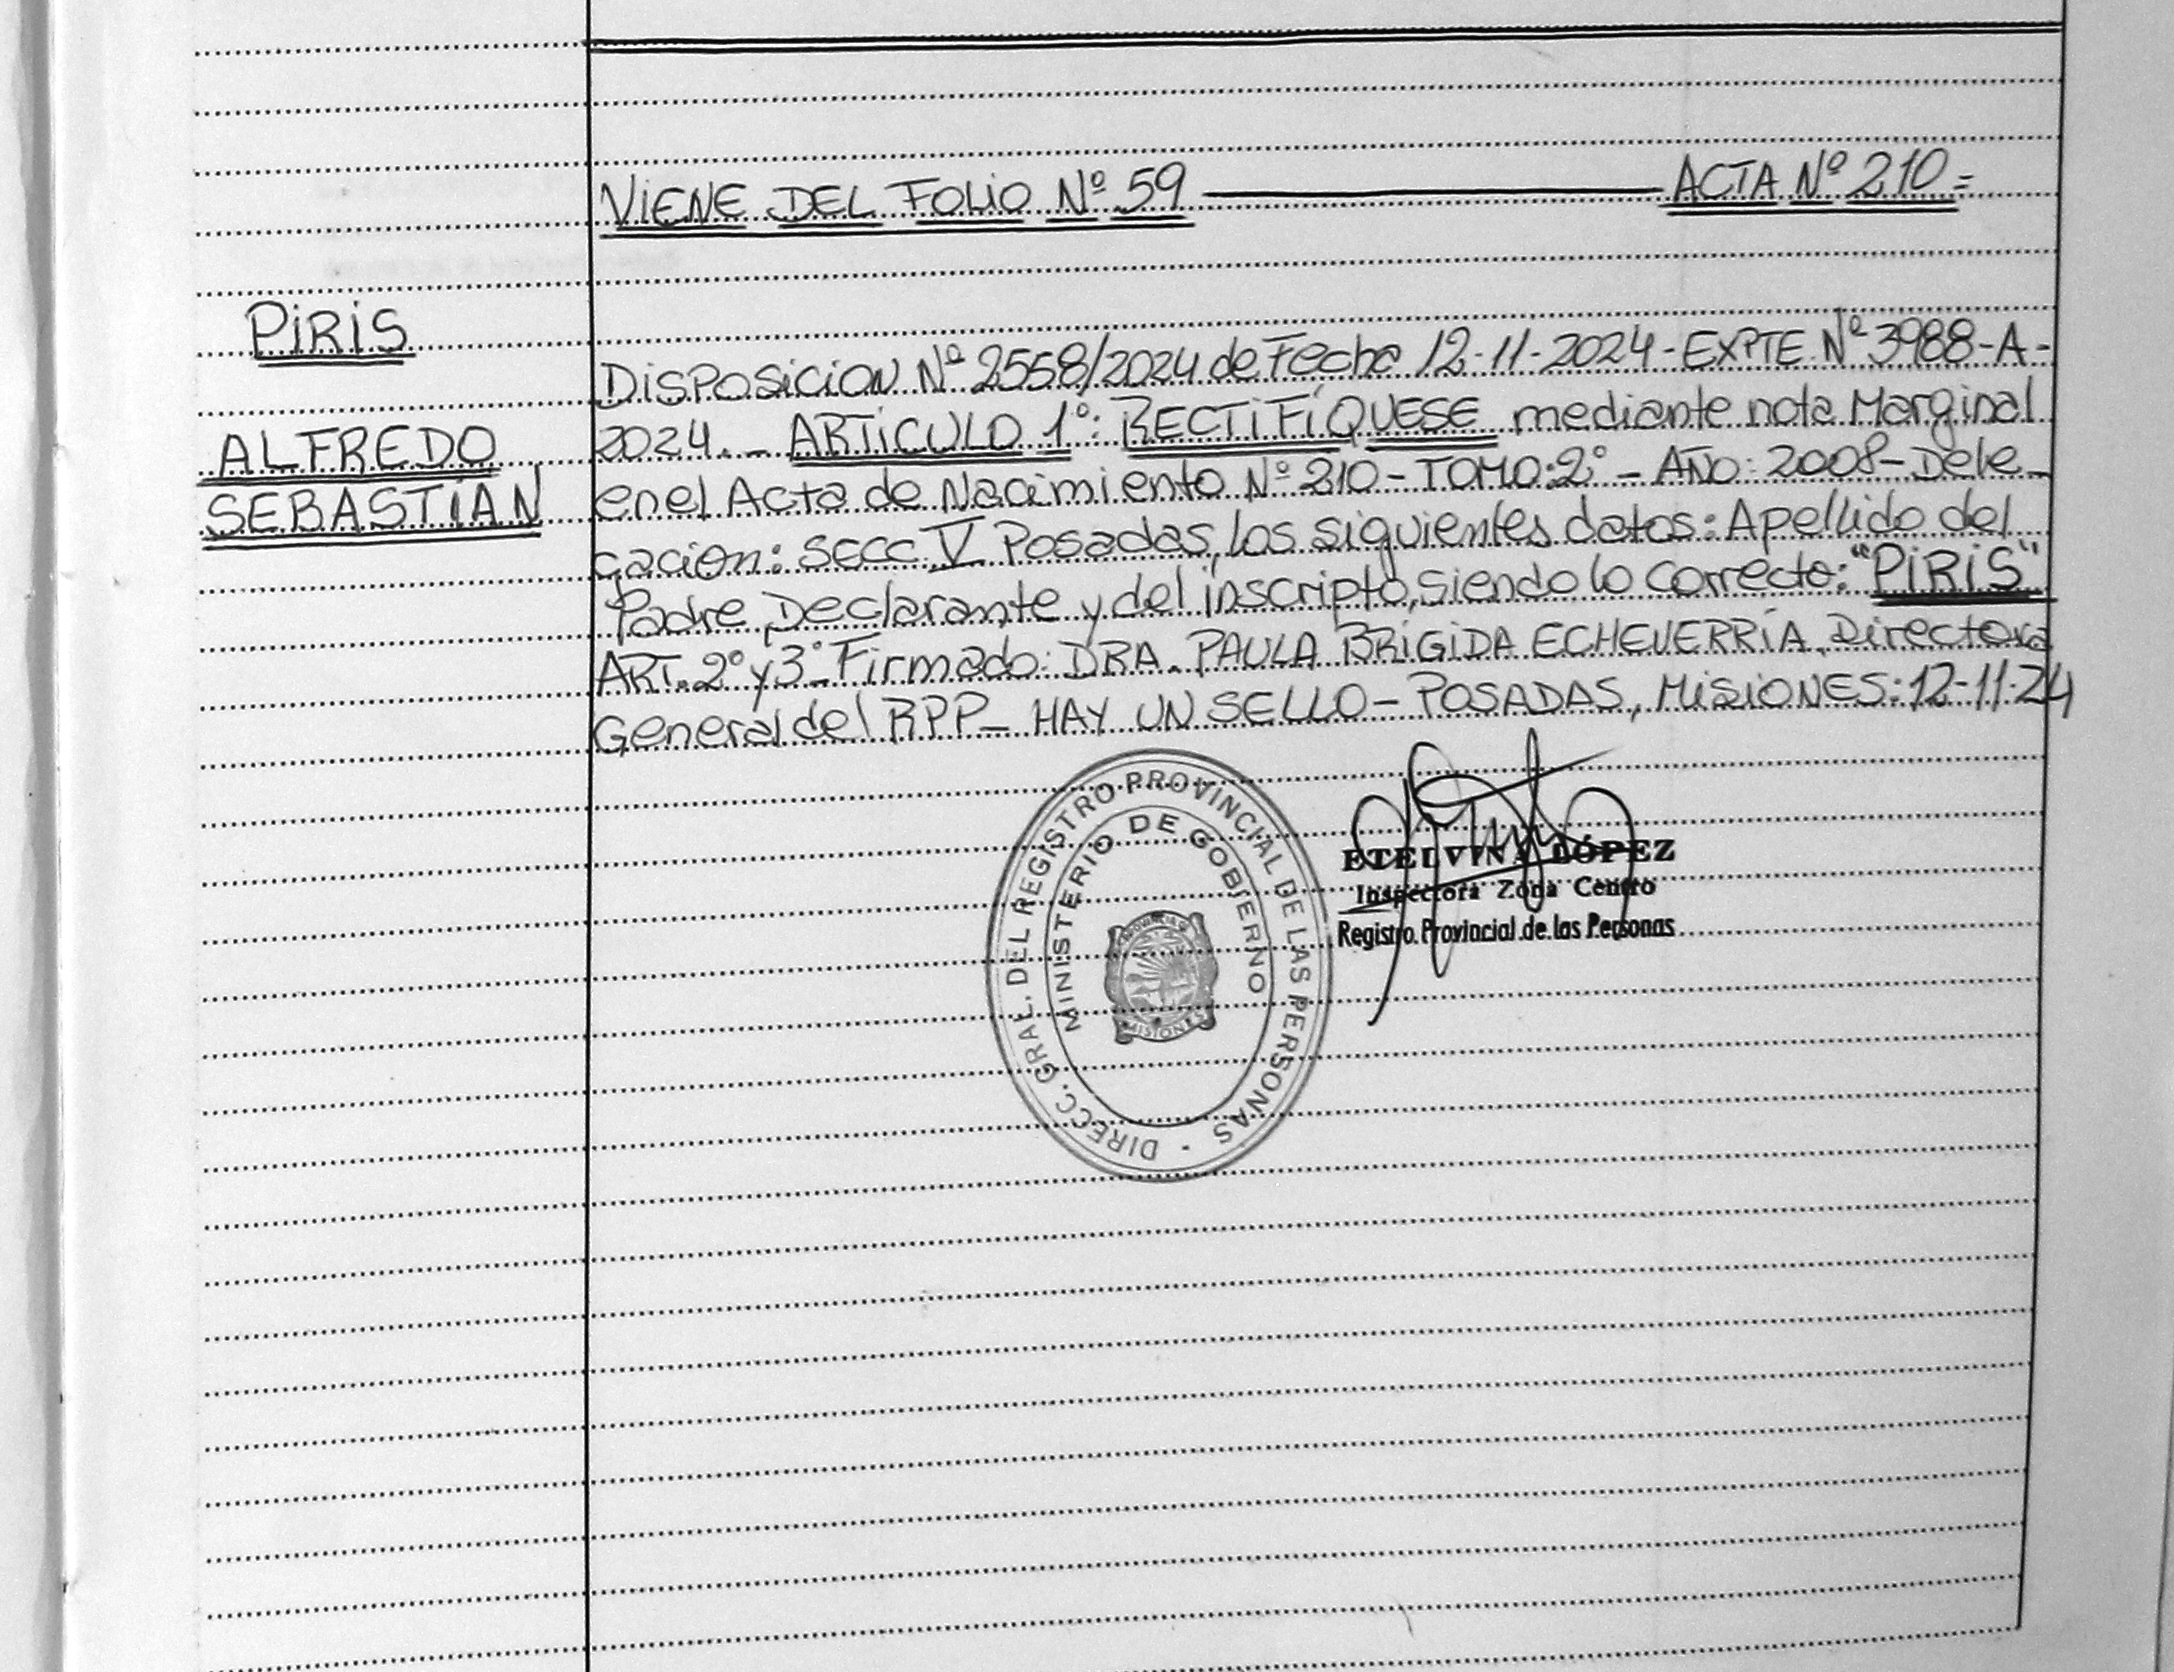 VIENE DEL FOLIO Nº 59 ACTA Nº 210=
PIRIS
ALFREDO
SEBASTIÁN
DISPOSICION Nº 2558/2024 de Fecha 12-11-2024-EXPTE Nº 3988-A-
2024.- ARTÍCULO 1º: RECTIFÍQUESE mediante nota Marginal
en el Acta de Nacimiento Nº 210-TOMO:2º-AÑO:2008-Dele-
cacion: SECC V Posadas, los siguientes datos: Apellido del
Padre, Declarante y del inscripto, siendo lo correcto: "PIRIS"
ART. 2º y 3º-Firmado: DRA. PAULA BRÍGIDA ECHEVERRÍA. Directora
General del RPP- HAY UN SELLO- POSADAS, MISIONES: 12-11-24
DIRECC. GRAL. DEL REGISTRO PROVINCIAL DE LAS PERSONAS -
MINISTERIO DE GOBIERNO
MISIONES
ETELVINA LÓPEZ
Inspectora Zona Centro
Registro Provincial de las Personas